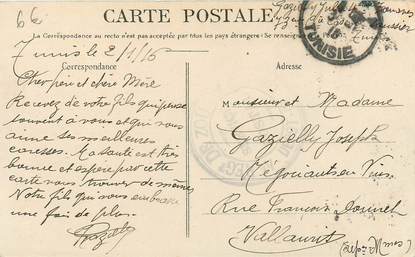 66
CARTE POSTALE
La Correspondance au recto n'est pas acceptée par tous les pays étrangers: Se renseigner
Tunis le 2/1/16
Correspondance
Adresse
Cher père et chère Mère
Recevez de votre fils qui pense
souvent à vous et qui vous
aime ses meilleures
caresses. Ma santé est très
bonne et espère que cette
carte vous trouver de même
Votre fils qui vous embrasse
une fois de plus.
Gazielly
TUNISIE
Monsieur et Madame
Gazielly Joseph
Négociants en Vins
Rue François
Vallauris
(Alpes Mmes)
DE ZOUAVES